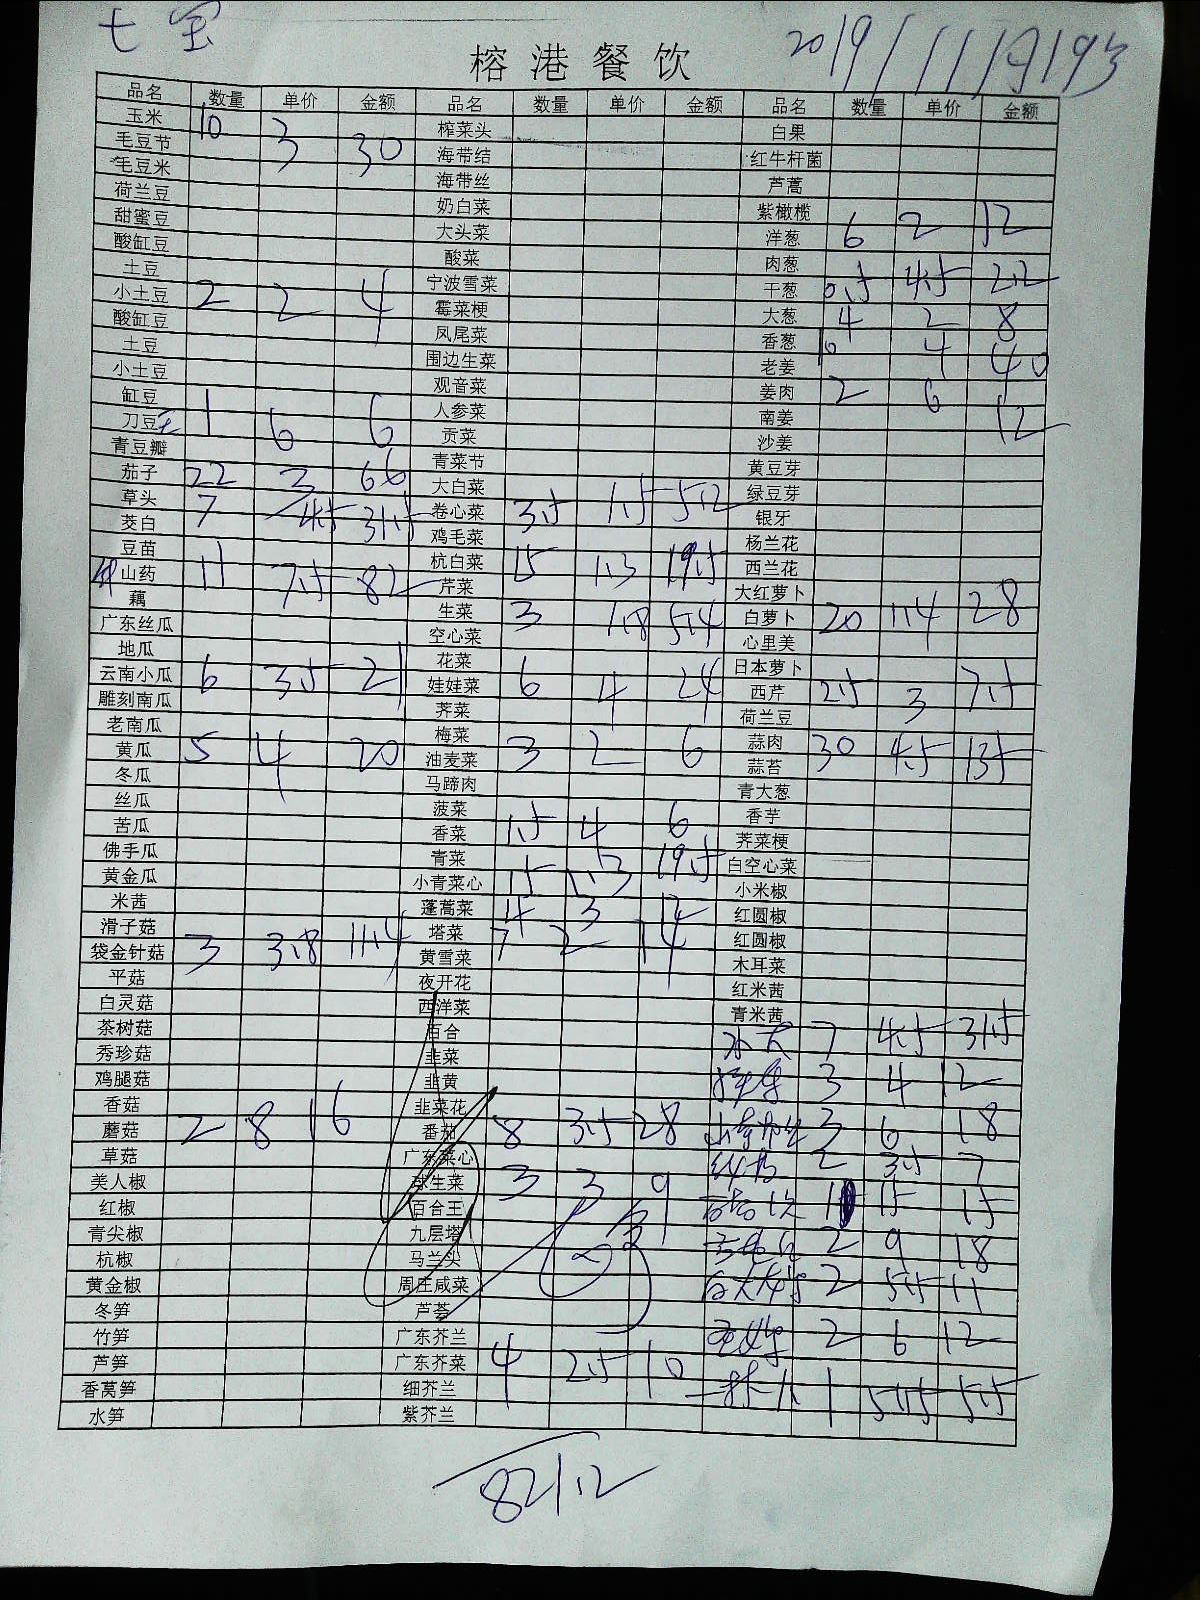 七宝
榕港餐饮
2019/11月19号
品名 数量 单价 金额 品名 数量 单价 金额 品名 数量 单价 金额
玉米 10 3 30 榨菜头 白果
毛豆节 海带结 红牛杆菌
毛豆米 海带丝 芦蒿
荷兰豆 奶白菜 紫橄榄
甜蜜豆 大头菜 洋葱 6 2 12
酸缸豆 酸菜 肉葱
土豆 宁波雪菜 干葱 0.5 4.5 2.2
小土豆 2 2 4 霉菜梗 大葱 4 2 8
酸缸豆 凤尾菜 香葱 10 4 40
土豆 围边生菜 老姜
小土豆 观音菜 姜肉 2 6 12
缸豆 人参菜 南姜
刀豆 1 6 6 贡菜 沙姜
青豆瓣 青菜节 黄豆芽
茄子 22 3 66 大白菜 绿豆芽
草头 7 4.5 31.5 卷心菜 3.5 1.5 5.2 银牙
茭白 鸡毛菜 杨兰花
豆苗 杭白菜 15 1.3 19.5 西兰花
山药 11 7.5 82 芹菜 大红萝卜
藕 生菜 3 1.8 5.4 白萝卜 20 1.4 28
广东丝瓜 空心菜 心里美
地瓜 花菜 日本萝卜
云南小瓜 6 3.5 21 娃娃菜 6 4 24 西芹 2.5 3 7.5
雕刻南瓜 荠菜 荷兰豆
老南瓜 梅菜 蒜肉 30 4.5 135
黄瓜 5 4 20 油麦菜 3 2 6 蒜苔
冬瓜 马蹄肉 青大葱
丝瓜 菠菜 香芋
苦瓜 香菜 1.5 4 6 荠菜梗
佛手瓜 青菜 白空心菜
黄金瓜 小青菜心 15 1.3 19.5 小米椒
米茜 蓬蒿菜 4 3 12 红圆椒
滑子菇 塔菜 7 2 14 红圆椒
袋金针菇 3 3.8 11.4 黄雪菜 木耳菜
平菇 夜开花 红米茜
白灵菇 西洋菜 青米茜
茶树菇 百合 7 4.5 31.5
秀珍菇 韭菜 3 4 12
鸡腿菇 韭黄 3 6 18
香菇 韭菜花 2 3.5 7
蘑菇 2 8 16 番茄 8 3.5 28
草菇 广东菜心
美人椒 球生菜 3 3 9
红椒 百合王 2 9 18
青尖椒 九层塔 2 5.5 11
杭椒 马兰头
黄金椒 周庄咸菜 2 6 12
冬笋 芦荟
竹笋 广东芥兰
芦笋 广东芥菜 4 2.5 10
香莴笋 细芥兰 1 5.5 5.5
水笋 紫芥兰
821.2